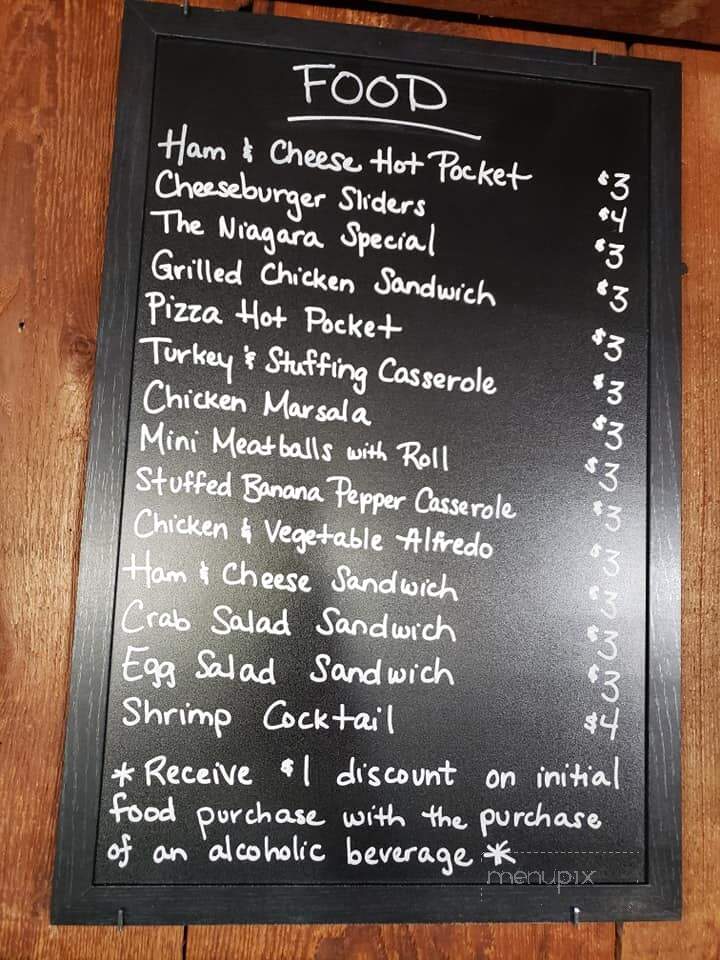 FOOD
Ham & Cheese Hot Pocket $3
Cheeseburger Sliders $4
The Niagara Special $3
Grilled Chicken Sandwich $3
Pizza Hot Pocket $3
Turkey & Stuffing Casserole $3
Chicken Marsala $3
Mini Meatballs with Roll $3
Stuffed Banana Pepper Casserole $3
Chicken & Vegetable Alfredo $3
Ham & Cheese Sandwich $3
Crab Salad Sandwich $3
Egg Salad Sandwich $3
Shrimp Cocktail $4
* Receive $1 discount on initial
food purchase with the purchase
of an alcoholic beverage *
menupix